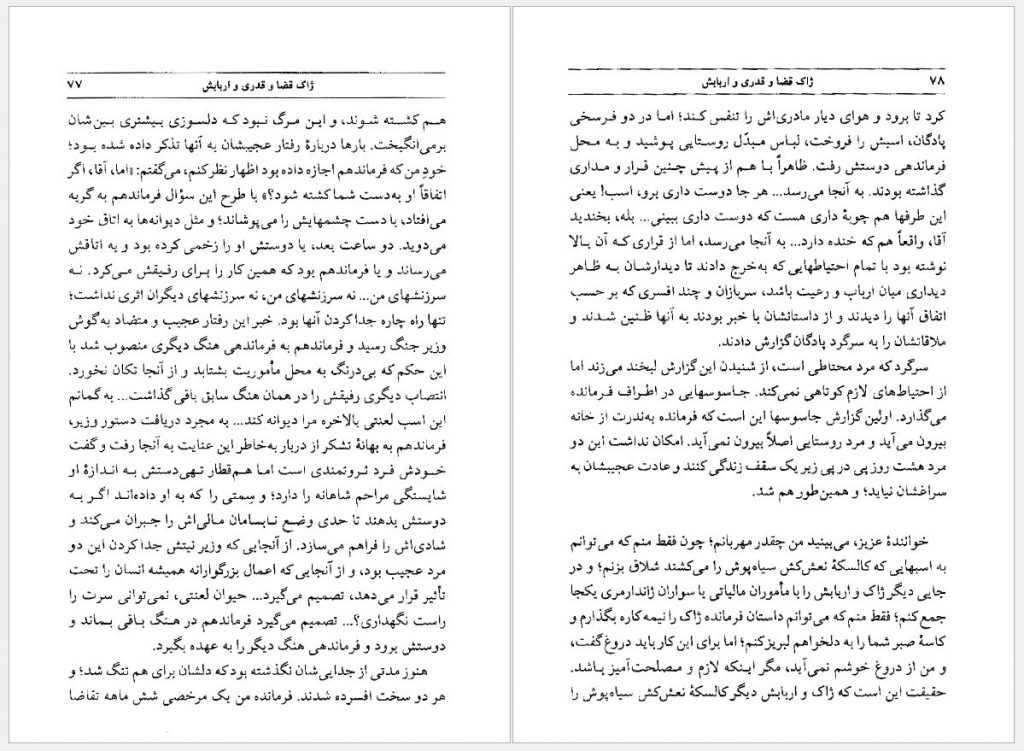 ژاک قضا و قدری و اربابش ۷۷
هم کشته شوند، و این مرگ نبود که دلسوزی بیشتری بین‌شان
برمی‌انگیخت. بارها دربارهٔ رفتار عجیبشان به آنها تذکر داده شده بود؛
خودِ من که فرماندهم اجازه داده بود اظهار نظر کنم، می‌گفتم: «اما، آقا، اگر
اتفاقاً او به‌دست شما کشته شود؟» با طرح این سؤال فرماندهم به گریه
می‌افتاد، با دست چشمهایش را می‌پوشاند؛ و مثل دیوانه‌ها به اتاق خود
می‌دوید. دو ساعت بعد، یا دوستش او را زخمی کرده بود و به اتاقش
می‌رساند و یا فرماندهم بود که همین کار را برای رفیقش می‌کرد. نه
سرزنشهای من... نه سرزنشهای من، نه سرزنشهای دیگران اثری نداشت؛
تنها راه چاره جدا کردن آنها بود. خبر این رفتار عجیب و متضاد به‌گوش
وزیر جنگ رسید و فرماندهم به فرماندهی هنگ دیگری منصوب شد با
این حکم که بی‌درنگ به محل مأموریت بشتابد و از آنجا تکان نخورد.
انتصاب دیگری رفیقش را در همان هنگ سابق باقی گذاشت... به گمانم
این اسب لعنتی بالاخره مرا دیوانه کند... به مجرد دریافت دستور وزیر،
فرماندهم به بهانهٔ تشکر از دربار به‌خاطر این عنایت به آنجا رفت و گفت
خودش فرد ثروتمندی است اما هم‌قطار تهی‌دستش به اندازهٔ او
شایستگی مراحم شاهانه را دارد؛ و سِمتی را که به او داده‌اند اگر به
دوستش بدهند تا حدی وضع نابسامان مالی‌اش را جبران می‌کند و
شادی‌اش را فراهم می‌سازد. از آنجایی که وزیر نیتش جدا کردن این دو
مرد عجیب بود، و از آنجایی که اعمال بزرگوارانه همیشه انسان را تحت
تأثیر قرار می‌دهد، تصمیم می‌گیرد... حیوان لعنتی، نمی‌توانی سرت را
راست نگهداری؟... تصمیم می‌گیرد فرماندهم در هنگ باقی بماند و
دوستش برود و فرماندهی هنگ دیگر را به عهده بگیرد.
هنوز مدتی از جدایی‌شان نگذشته بود که دلشان برای هم تنگ شد؛ و
هر دو سخت افسرده شدند. فرمانده من یک مرخصی شش ماهه تقاضا
۷۸ ژاک قضا و قدری و اربابش
کرد تا برود و هوای دیار مادری‌اش را تنفس کند؛ اما در دو فرسخی
پادگان، اسبش را فروخت، لباس مبدّل روستایی پوشید و به محل
فرماندهی دوستش رفت. ظاهراً با هم از پیش چنین قرار و مداری
گذاشته بودند. به آنجا می‌رسد... هر جا دوست داری برو، اسب! یعنی
این طرفها هم چوبهٔ داری هست که دوست داری ببینی... بله، بخندید
آقا، واقعاً هم که خنده دارد... به آنجا می‌رسد، اما از قراری که آن بالا
نوشته بود با تمام احتیاطهایی که به‌خرج دادند تا دیدارشان به ظاهر
دیداری میان ارباب و رعیت باشد، سربازان و چند افسری که بر حسب
اتفاق آنها را دیدند و از داستانشان با خبر بودند به آنها ظنین شدند و
ملاقاتشان را به سرگرد پادگان گزارش دادند.
سرگرد که مرد محتاطی است، از شنیدن این گزارش لبخند می‌زند اما
از احتیاط‌های لازم کوتاهی نمی‌کند. جاسوسهایی در اطراف فرمانده
می‌گذارد. اولین گزارش جاسوسها این است که فرمانده به‌ندرت از خانه
بیرون می‌آید و مرد روستایی اصلاً بیرون نمی‌آید. امکان نداشت این دو
مرد هشت روز پی در پی زیر یک سقف زندگی کنند و عادت عجیبشان به
سراغشان نیاید؛ و همین‌طور هم شد.
خوانندهٔ عزیز، می‌بینید من چقدر مهربانم؛ چون فقط منم که می‌توانم
به اسبهایی که کالسکهٔ نعش‌کش سیاه‌پوش را می‌کشند شلاق بزنم؛ و در
جایی دیگر ژاک و اربابش را با مأموران مالیاتی یا سواران ژاندارمری یکجا
جمع کنم؛ فقط منم که می‌توانم داستان فرمانده ژاک را نیمه کاره بگذارم و
کاسهٔ صبر شما را به دلخواهم لبریز کنم؛ اما برای این کار باید دروغ گفت،
و من از دروغ خوشم نمی‌آید، مگر اینکه لازم و مصلحت‌آمیز باشد.
حقیقت این است که ژاک و اربابش دیگر کالسکهٔ نعش‌کش سیاه‌پوش را